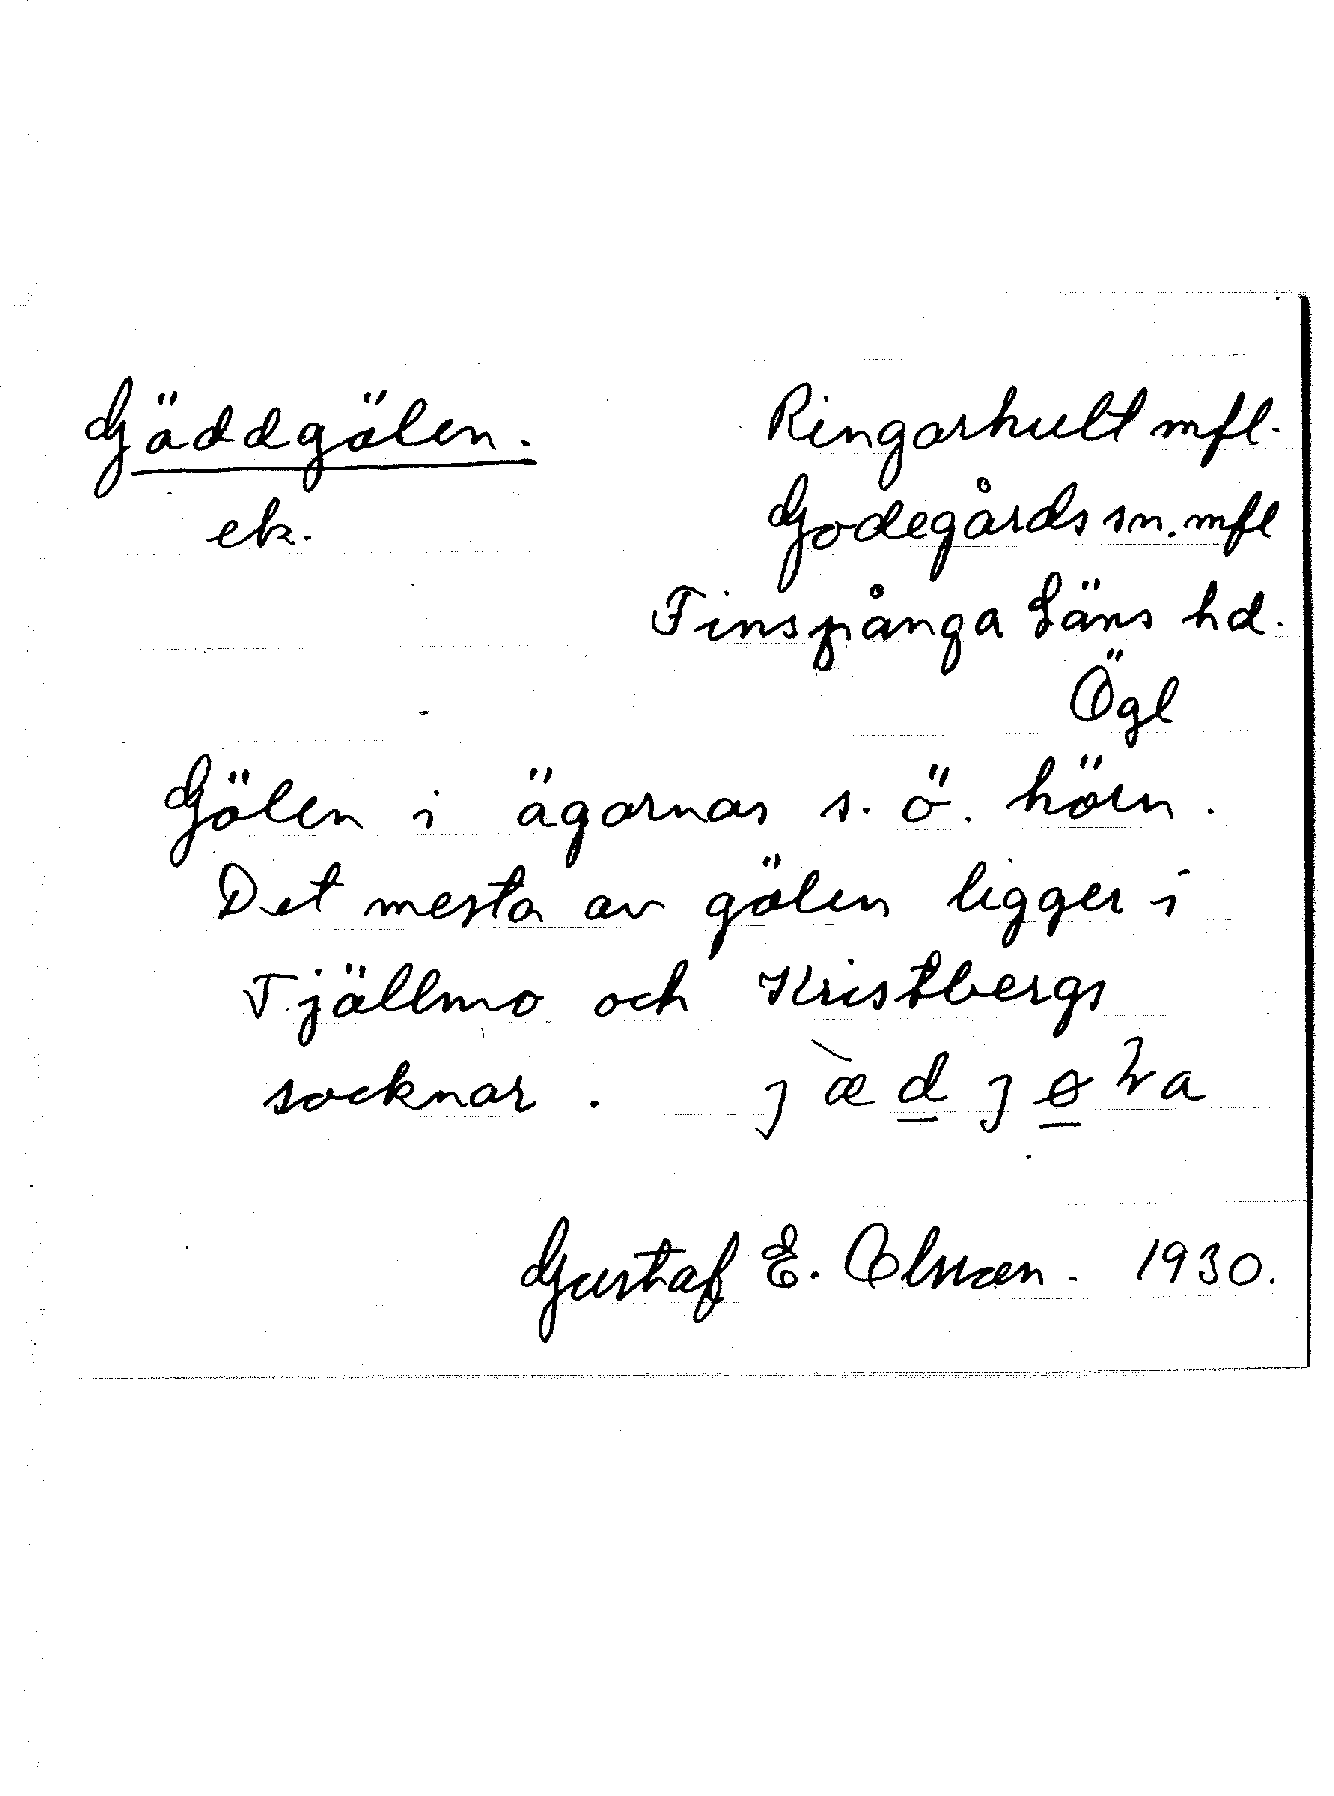 Gäddgölen.
ek.
Ringarhult mfl.
Godegårds sn. mfl
Finspånga Läns hd.
Ögl
Gölen i ägornas s. ö. hörn.
Det mesta av gölen ligger i
Tjällmo och Kristbergs
socknar.
Gustaf E. Olsson. 1930.